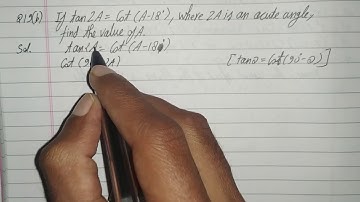 Q19(b) If tan 2A = Cot (A-18°), where 2A is an acute angle,
find the value of A.
Sol. tan 2A = Cot (A-18°)
Cot (90-2A) [tanθ = Cot(90-θ)]